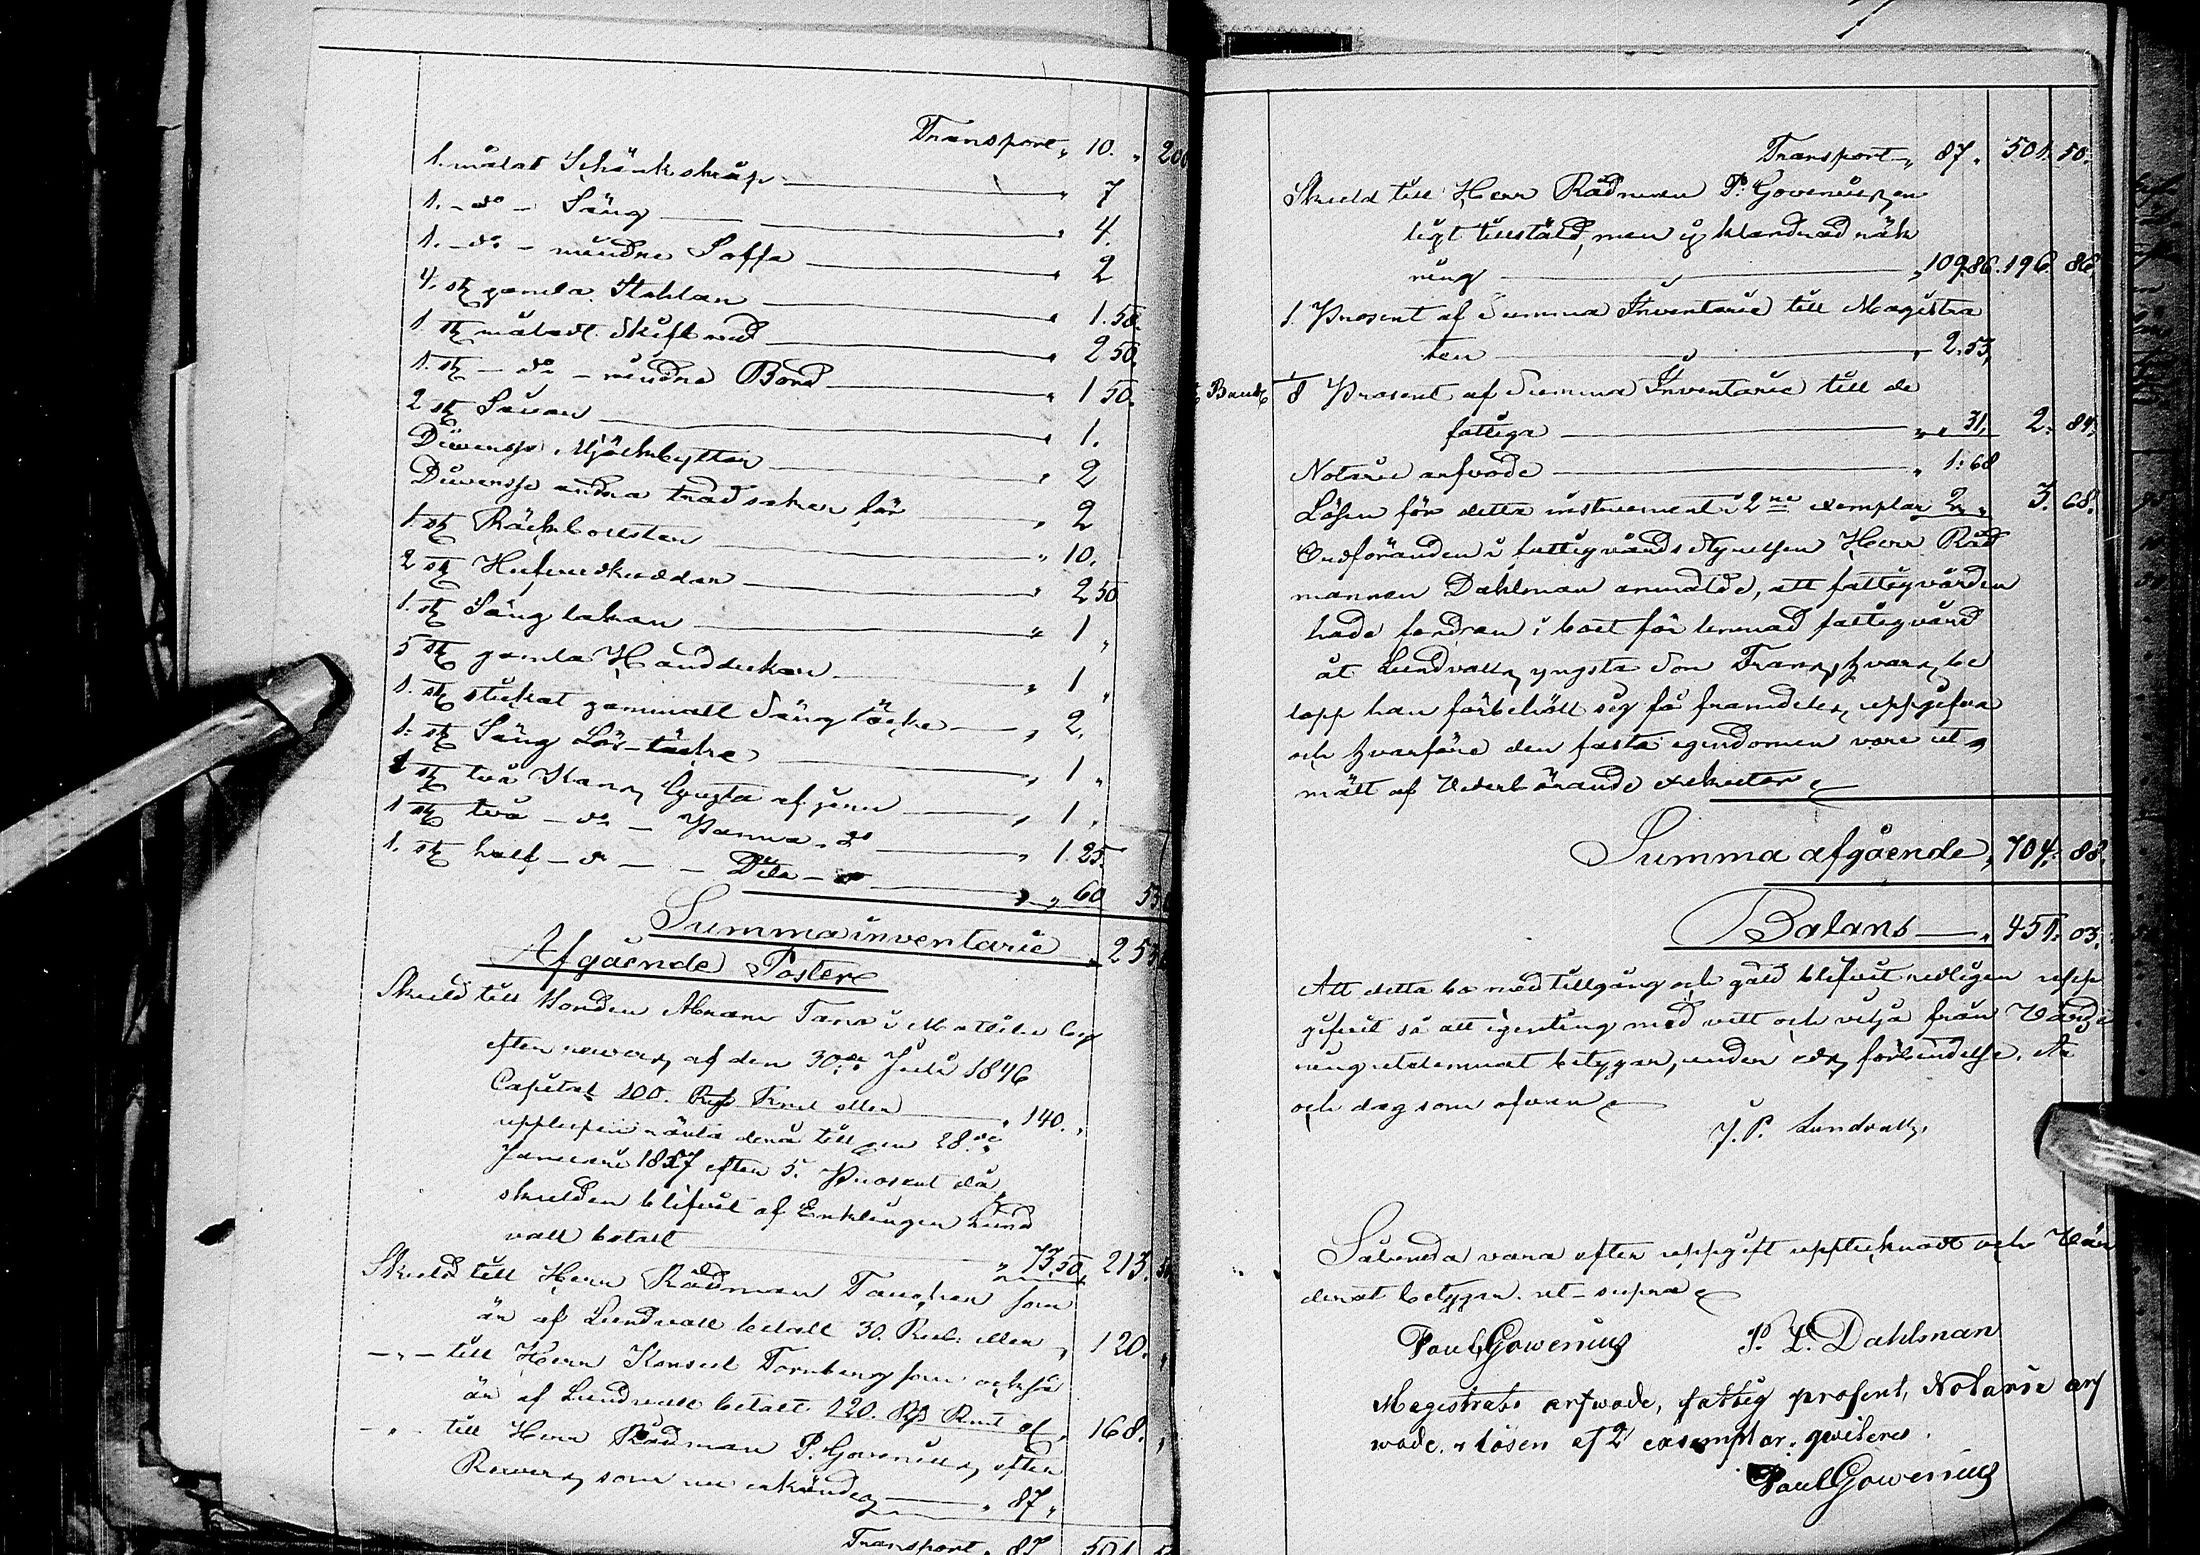 Transport „ 10. „ 200
1. målat Schänkskåp „ 7
1. – do – Säng „ 4.
1. – do – mindre Soffa „ 2
4. st gamla Stohlar „ 1. 50.
1. st måladt Skift „ 2 50.
1. st – do – mindre Bord „ 1 50.
2 st Såuar „ 1.
Diwersse Mjölkbyttor „ 2
Diwersse andra trädsaker för „ 2
1. st „ 10.
2 st „ 2 50
1. st Säng lakan „ 1 „
5 st gamla Handdukar „ 1 „
1. st stickat gammalt Säng täcke „ 2.
1. st Säng täcke „ 1 „
1 st två Kans Gryta af jern „ 1 „
1 st två – do – Panna do „ 1. 25.
1. st half – do – – Dito – do „ „ 60 53
Summa inventarie „ 253
Afgående Poster
Skuld till Bonden Abram i
efter revers af den 30de Juli 1846
Capital 100. Rub eller „ 140. „
upplupen ränta derå till den 28de
Januari 1857 efter 5. Prosent då
skulden blifvit af Enklingen Lund
vall betalt „ 73.50 213. 50
Skuld till Herr Rådman som
är af Lundvall betalt 30. Rub: eller „ 120. „
– „ – till Herr Konsul Tornberg som också
är af Lundvall betalt 120. „ 168. „
– „ – till Herr Rådman P. Govenius, efter
Revers, som nu erkändes „ 87 „
Transport „ 87 501. 50
Transport „ 87 „ 501. 50.
Skuld till Herr Rådman P. Govenius, en
ligt tillstäld, men ej klandrad räk
ning „ 109.86. 196. 86.
1. Prosent af Summa Inventarie till Magistra
ten „ 2.53.
1/8 Prosent af Summa Inventarie till de
fattiga „ „ 31. 2. 84.
Notarie arfvode „ 1:68
Lösen för detta instrument i 2ne exemplar 2 „ „ 3. 68.
Ordföranden i fattigvårds styrelsen Herr Råd
mannen Dahlman anmälde, att fattigvården
hade fordran i boet för lemnad fattigvård
åt Lundvalls yngsta Son Frans, hvars be
lopp han förbehöll sig få framdeles uppgifva
och hvarföre den fasta egendomen vore ut
mätt af Vederbörande exekutor
Summa afgående „ 704. 88.
Balans „ 451. 03.
Att detta bo med tillgång och gäld blifvit redligen upp
gifvit så att ingenting med vett och vilja från Värde
ring utelemnat betygar, under eds förbindelse. År
och dag som ofvan
J. P. Lundvall.
Sålunda vara efter uppgift upptecknadt och Vär
derat betygar. ut – supra
Paul Gowenius P. L. Dahlman
Magistrats arfwode, fattig prosent, Notarie arf
wode, o lösen af 2 exemplar. qwiteres.
Paul Gowenius